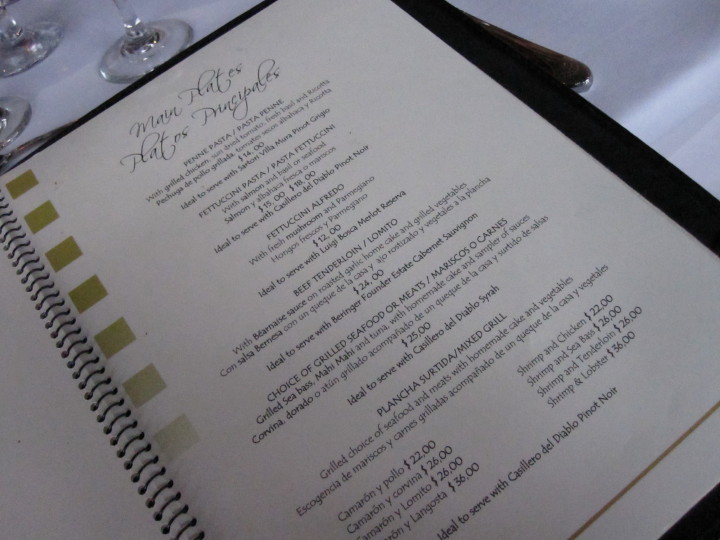 Main Plates
Platos Principales
PENNE PASTA / PASTA PENNE
With grilled chicken, sun dried tomato, fresh basil and Ricotta
Pechuga de pollo grillada, tomates secos albahaca y Ricotta
$ 14, 00
Ideal to serve with Sartori Villa Mura Pinot Grigio
FETTUCCINI PASTA / PASTA FETTUCCINI
With salmon and basil or seafood
Salmon y albahaca fresca o mariscos
$ 15, 00 $ 18, 00
Ideal to serve with Casillero del Diablo Pinot Noir
FETTUCCINI ALFREDO
With fresh mushroom and Parmegiano
Hongos frescos y Parmegiano
$ 12, 00
Ideal to serve with Luigi Bosca Merlot Reserva
BEEF TENDERLOIN / LOMITO
With Béarnaise sauce on roasted garlic home cake and grilled vegetables
Con salsa Bernesa con un queque de la casa y ajo rostizado y vegetales a la plancha
$ 24, 00
Ideal to serve with Beringer Founder Estate Cabernet Sauvignon
CHOICE OF GRILLED SEAFOOD OR MEATS / MARISCOS O CARNES
Grilled Sea bass, Mahi Mahi and tuna, with homemade cake and sampler of sauces
Corvina, dorado o atún grillado acompañado de un queque de la casa y surtido de salsas
$ 25,00
Ideal to serve with Casillero del Diablo Syrah
PLANCHA SURTIDA/MIXED GRILL
Grilled choice of seafood and meats with homemade cake and vegetables
Escogencia de mariscos y carnes grilladas acompañado de un queque de la casa y vegetales
Camarón y pollo $ 22,00
Camarón y corvina $ 26,00
Camarón y Lomito $ 26,00
Camarón y Langosta $ 36,00
Shrimp and Chicken $ 22,00
Shrimp and Sea Bass $ 26,00
Shrimp and Tenderloin $ 26,00
Shrimp & Lobster $ 36,00
Ideal to serve with Casillero del Diablo Pinot Noir